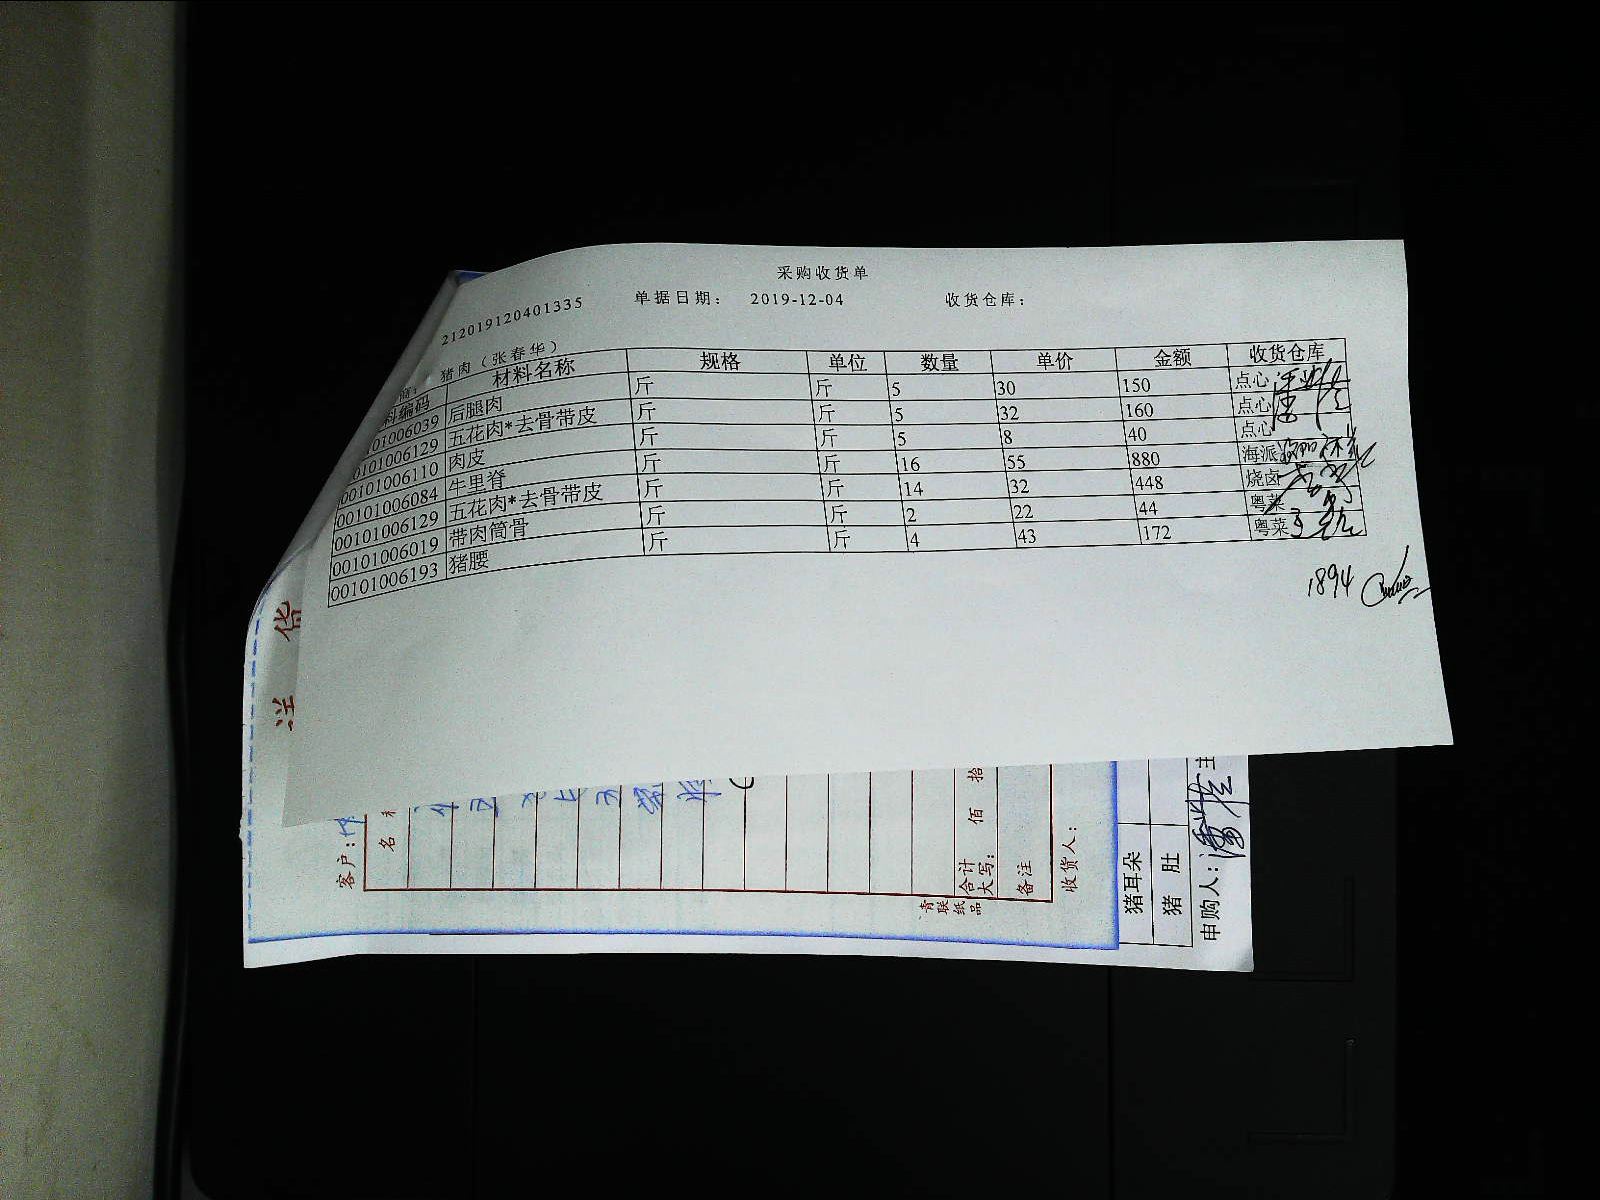 采购收货单
212019120401335 单据日期： 2019-12-04 收货仓库：
商： 猪肉（张春华）
料编码 材料名称 规格 单位 数量 单价 金额 收货仓库
01006039 后腿肉 斤 斤 5 30 150 点心
0101006129 五花肉*去骨带皮 斤 斤 5 32 160 点心
00101006110 肉皮 斤 斤 5 8 40 点心
00101006084 牛里脊 斤 斤 16 55 880 海派
00101006129 五花肉*去骨带皮 斤 斤 14 32 448 烧卤
00101006019 带肉筒骨 斤 斤 2 22 44 粤菜
00101006193 猪腰 斤 斤 4 43 172 粤菜
1894
客户：
名
合计
大写： 佰 拾
备注
收货人：
青联纸品
猪耳朵
猪肚
申购人：